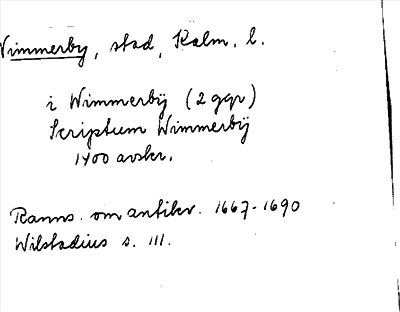 Wimmerby, stad, Kalm. l.
i Wimmerbÿ (2 ggr)
Scriptum Wimmerbÿ
1400 avskr.
Ranns. om antikv. 1667-1690
Wilstadius s. 111.